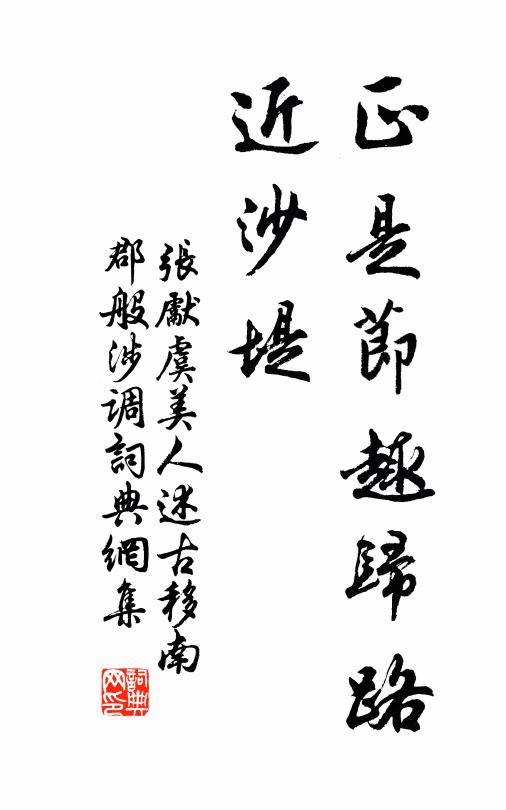 正是莭趣歸路
近沙堤
張獻虞美人述古移南
郡般涉调詞典網集
詞典网印